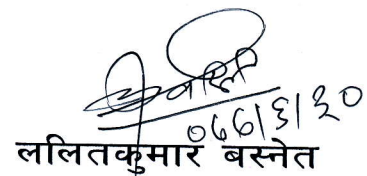 ०७७/६/३०
ललितकुमार बस्नेत